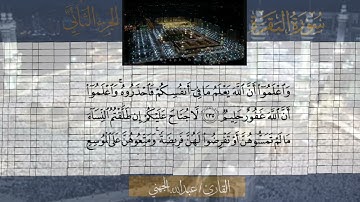 سورة البقرة
الجزء الثاني
وَاعْلَمُوٓا۟ أَنَّ اللَّهَ يَعْلَمُ مَا فِىٓ أَنفُسِكُمْ فَاحْذَرُوهُ ۚ وَاعْلَمُوٓا۟
أَنَّ اللَّهَ غَفُورٌ حَلِيمٌ ﴿٢٣٥﴾ لَّا جُنَاحَ عَلَيْكُمْ إِن طَلَّقْتُمُ النِّسَآءَ
مَا لَمْ تَمَسُّوهُنَّ أَوْ تَفْرِضُوا۟ لَهُنَّ فَرِيضَةً ۚ وَمَتِّعُوهُنَّ عَلَى الْمُوسِعِ
القارئ / عبدالله الجهني